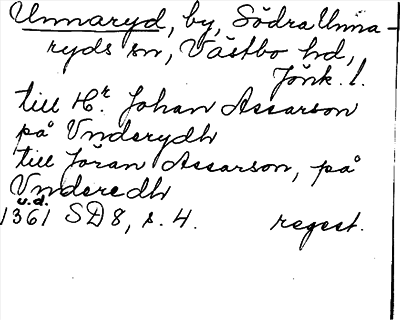 Unnaryd, by, Södra Unna-
ryds sn, Västbo hd,
Jönk. l.
till Hr. Johan Assarson
på Vnderydh
till Jöran Assarson, på
Vnderedh
u.d.
1361 SD 8, s. 4. regest.